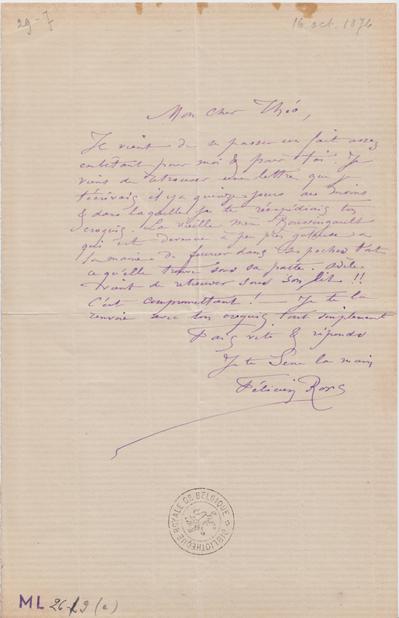 29-7
16 oct. 1876
Mon cher Théo,
Il vient de se passer un fait assez
embêtant pour moi & pour toi. Je
viens de retrouver une lettre que je
t'écrivais il y a quinze jours au moins
& dans laquelle je te réexpédiais ton
croquis. La vieille mère Boussingault
qui est devenue à peu près gateuse a
la manie de fourrer dans ses poches tout
ce qu'elle trouve sous sa patte.
vient de retrouver sous son lit !!
C'est compromettant ! – Je te la
renvoie avec ton croquis tout simplement
vite & réponds
Je te serre la main
Félicien Rops
BIBLIOTHÈQUE ROYALE DE BELGIQUE
ML 26 9 (a)